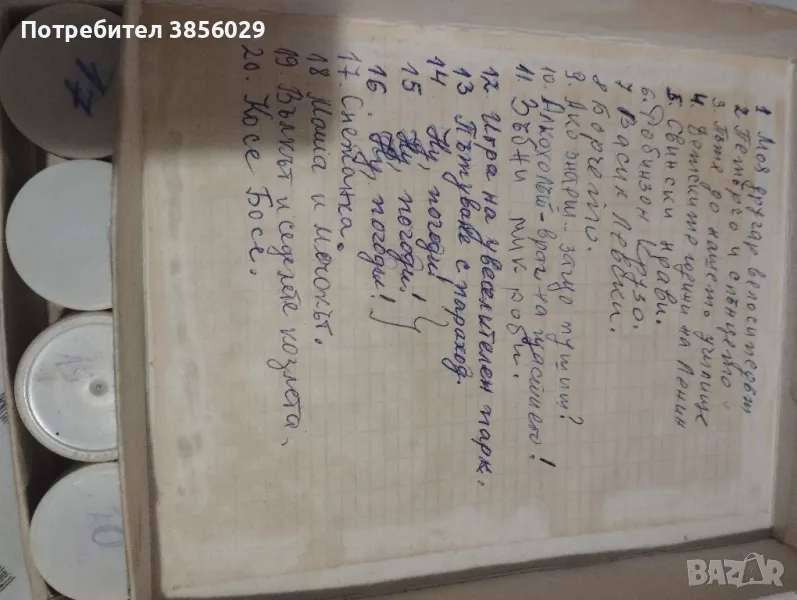 Потребител 3856029
1 Моя другар велосипедът
2 Петърчо и слънцето.
3. Пътя до нашето училище
4 Детските години на Ленин
5. Свински нрави.
6. Робинзон Крузо.
7 Васил Левски.
8 Борчето.
9. Ако знаеш - защо пушиш?
10. Алкохолът - враг на щастието!
11. Зъбни
12 Игра на увеселителен парк.
13 Пътуване с параход.
14 Ну, погоди!
15 Ну, погоди!
16. Ну, погоди!
17. Снежанка.
18 Маша и мечокът.
19. Вълкът и седемте козлета.
20. Косе Босе.
17
15
10
BAZAR